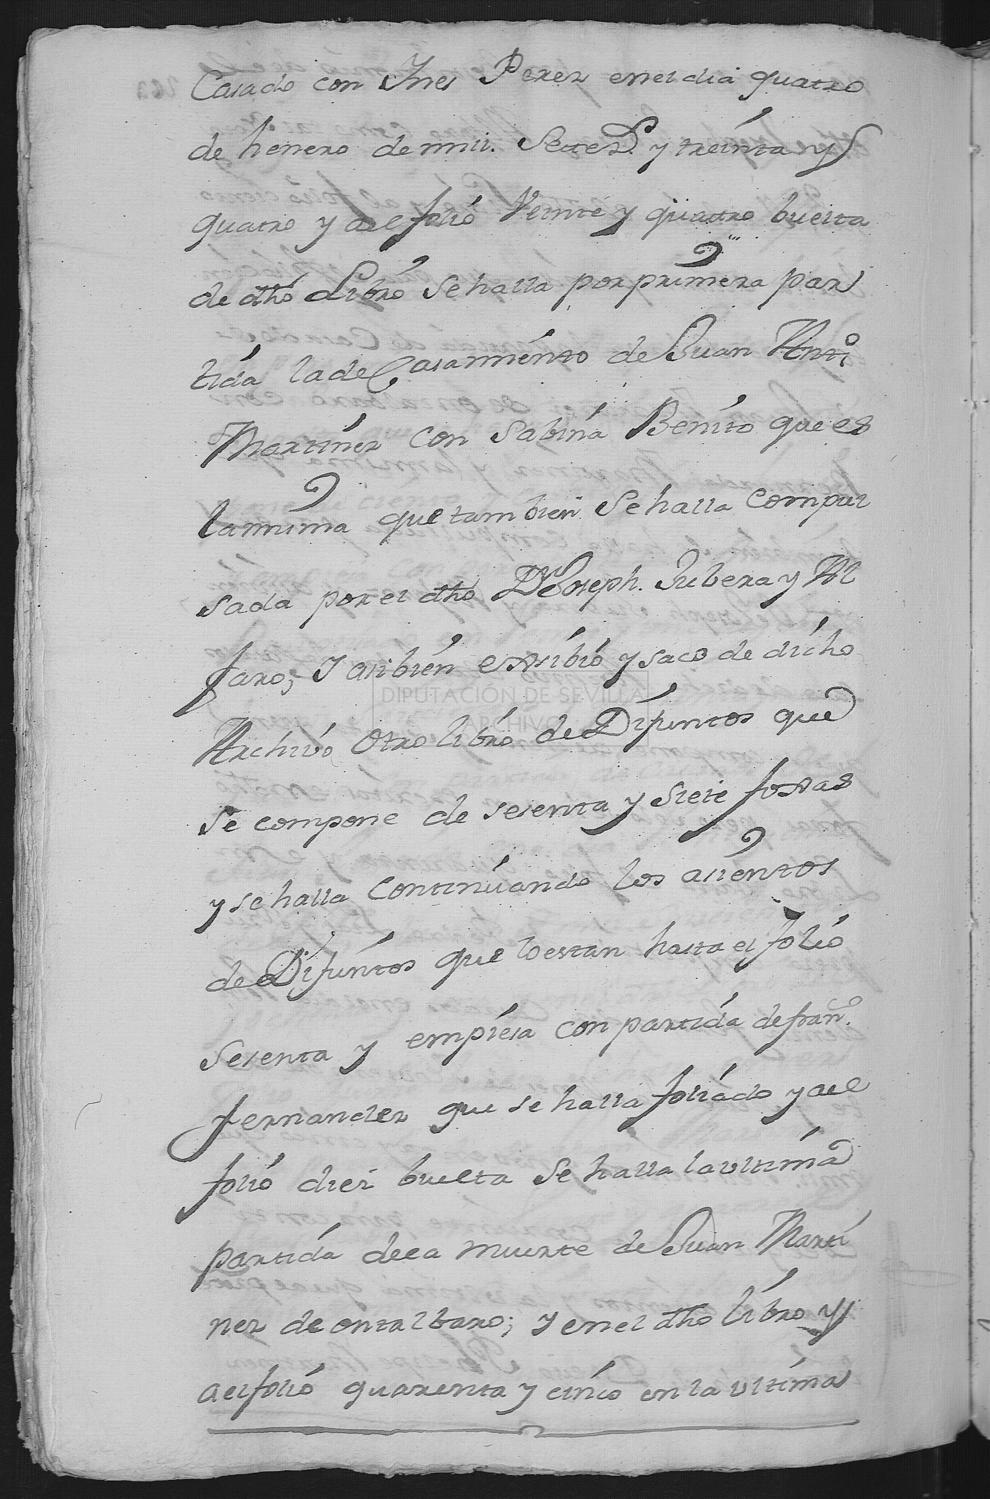 Casado con Ynes Perez enel dia quatro
de henero de mil. Setes. y treinta y
quatro y ael folio Veinte y quatro buelta
de dho Libro se halla por primera par
tida la de Casamiento de Juan Anto.
Martinez con Sabina Benito que es
la misma que tambien se halla Compul
sada por el dho Dn Joseph. Jubera y Al
faro; Y asi bien exsibio y saco de dicho
Archivo otro libro de Difuntos que
se compone de sesenta y siete foxas
y se halla Continuando los asientos
de Difuntos que lo estan hasta el folio
sesenta y empiesa con partida de Fran.co
Fernandez que se halla foliado y ael
folio diez buelta se halla la ultima
partida dela muerte de Juan Marti
nez de ontalbaro; y en el dho libro y
ael folio quarenta y cinco en la ultima
DIPUTACIÓN DE SEVILLA
ARCHIVO